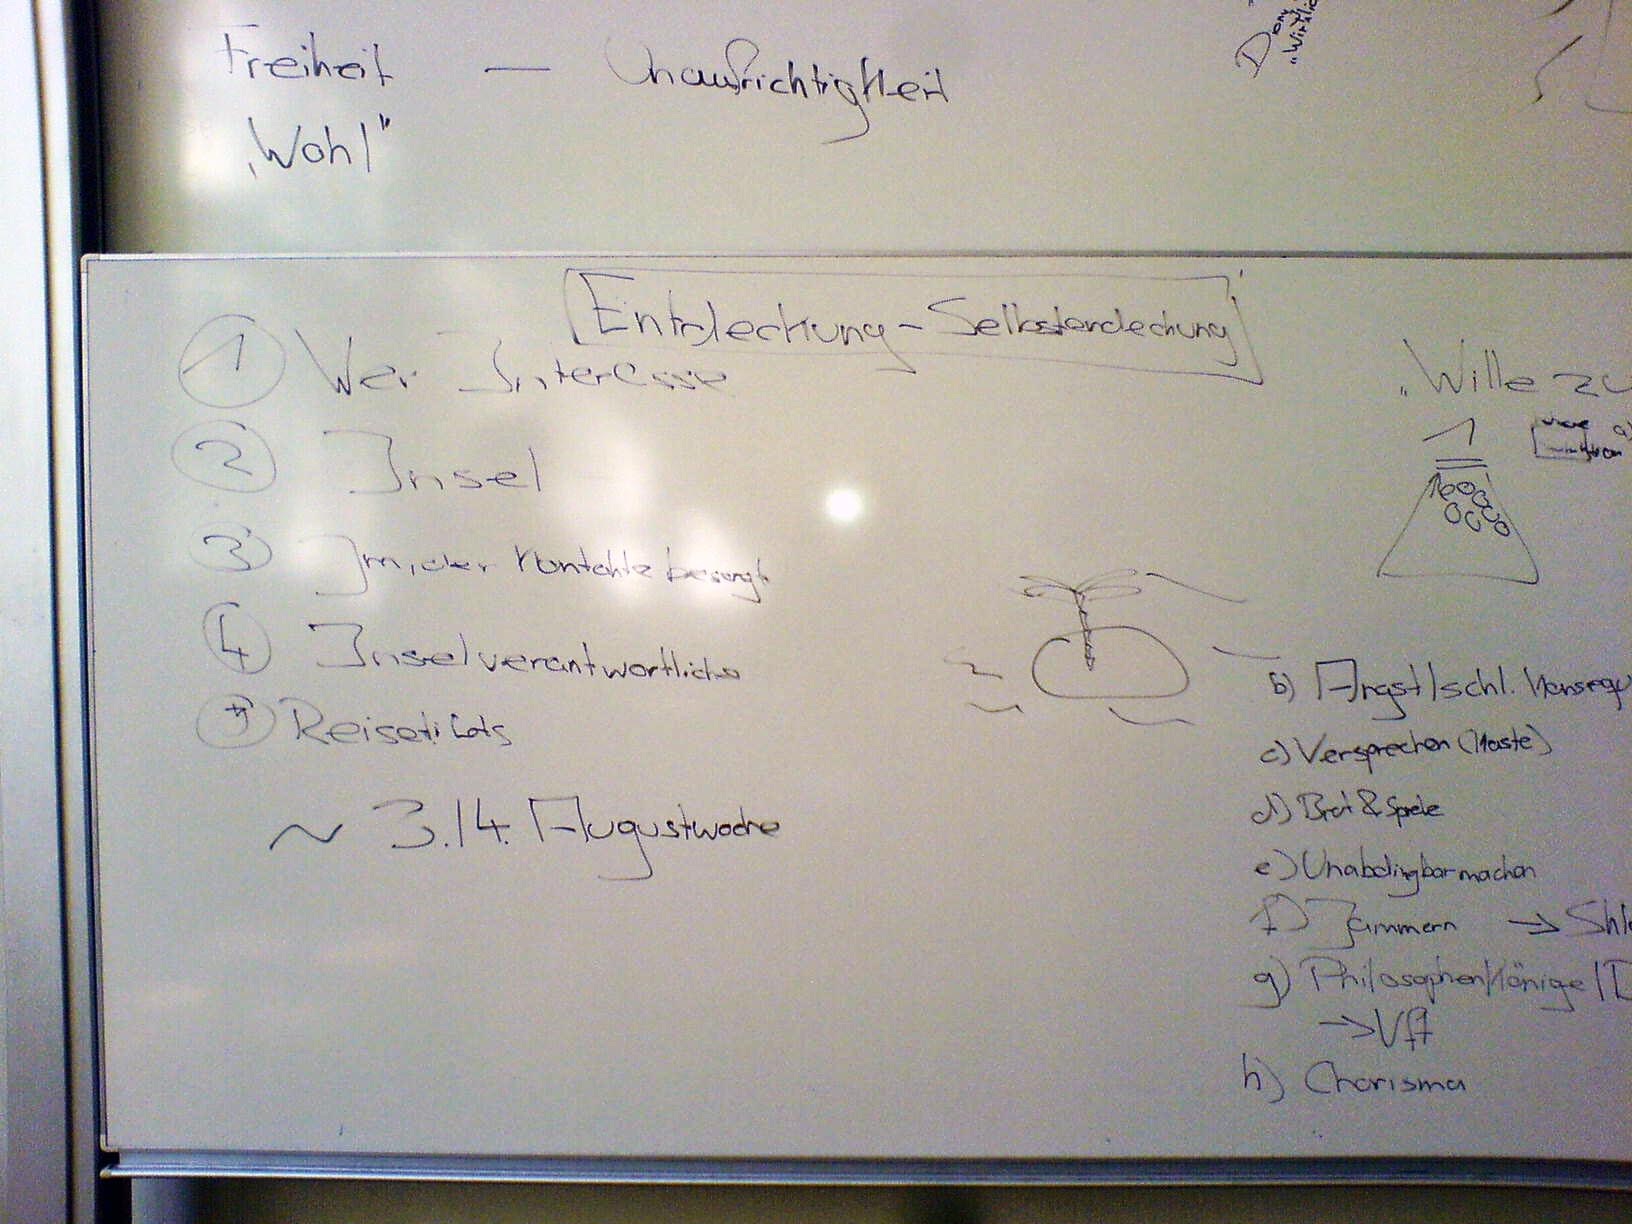 Freiheit — Unaufrichtigkeit
„Wohl"
Entdeckung - Selbstendeckung
1 Wer Interesse
2 Insel
3 Kontakte besorgt
4 Inselverantwortliche
5 Reise
~ 3./4. Augustwoche
„Wille zu
1
b) Angst/schl. Konsequ
c) Versprechen
d) Brot & Spiele
e) Unabdingbar machen
f) Jammern →
g) Philosophenkönige /
→ Vft
h) Charisma